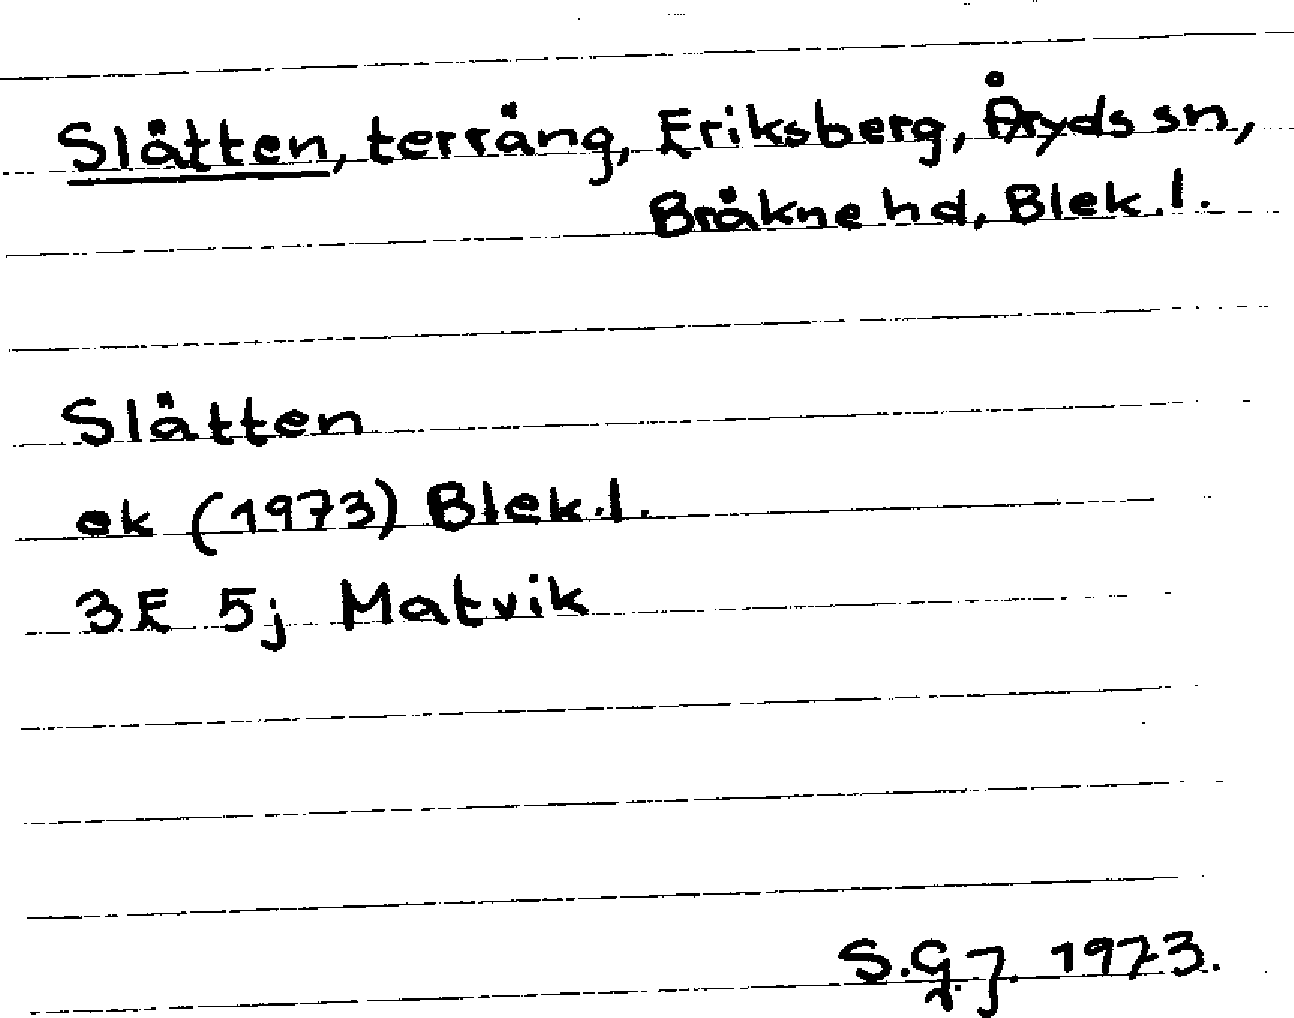 Slätten, terräng, Eriksberg, Åryds sn,
Bräkne hd, Blek.l.
Slätten
ek (1973) Blek.l.
3E 5j Matvik
S.G.J. 1973.